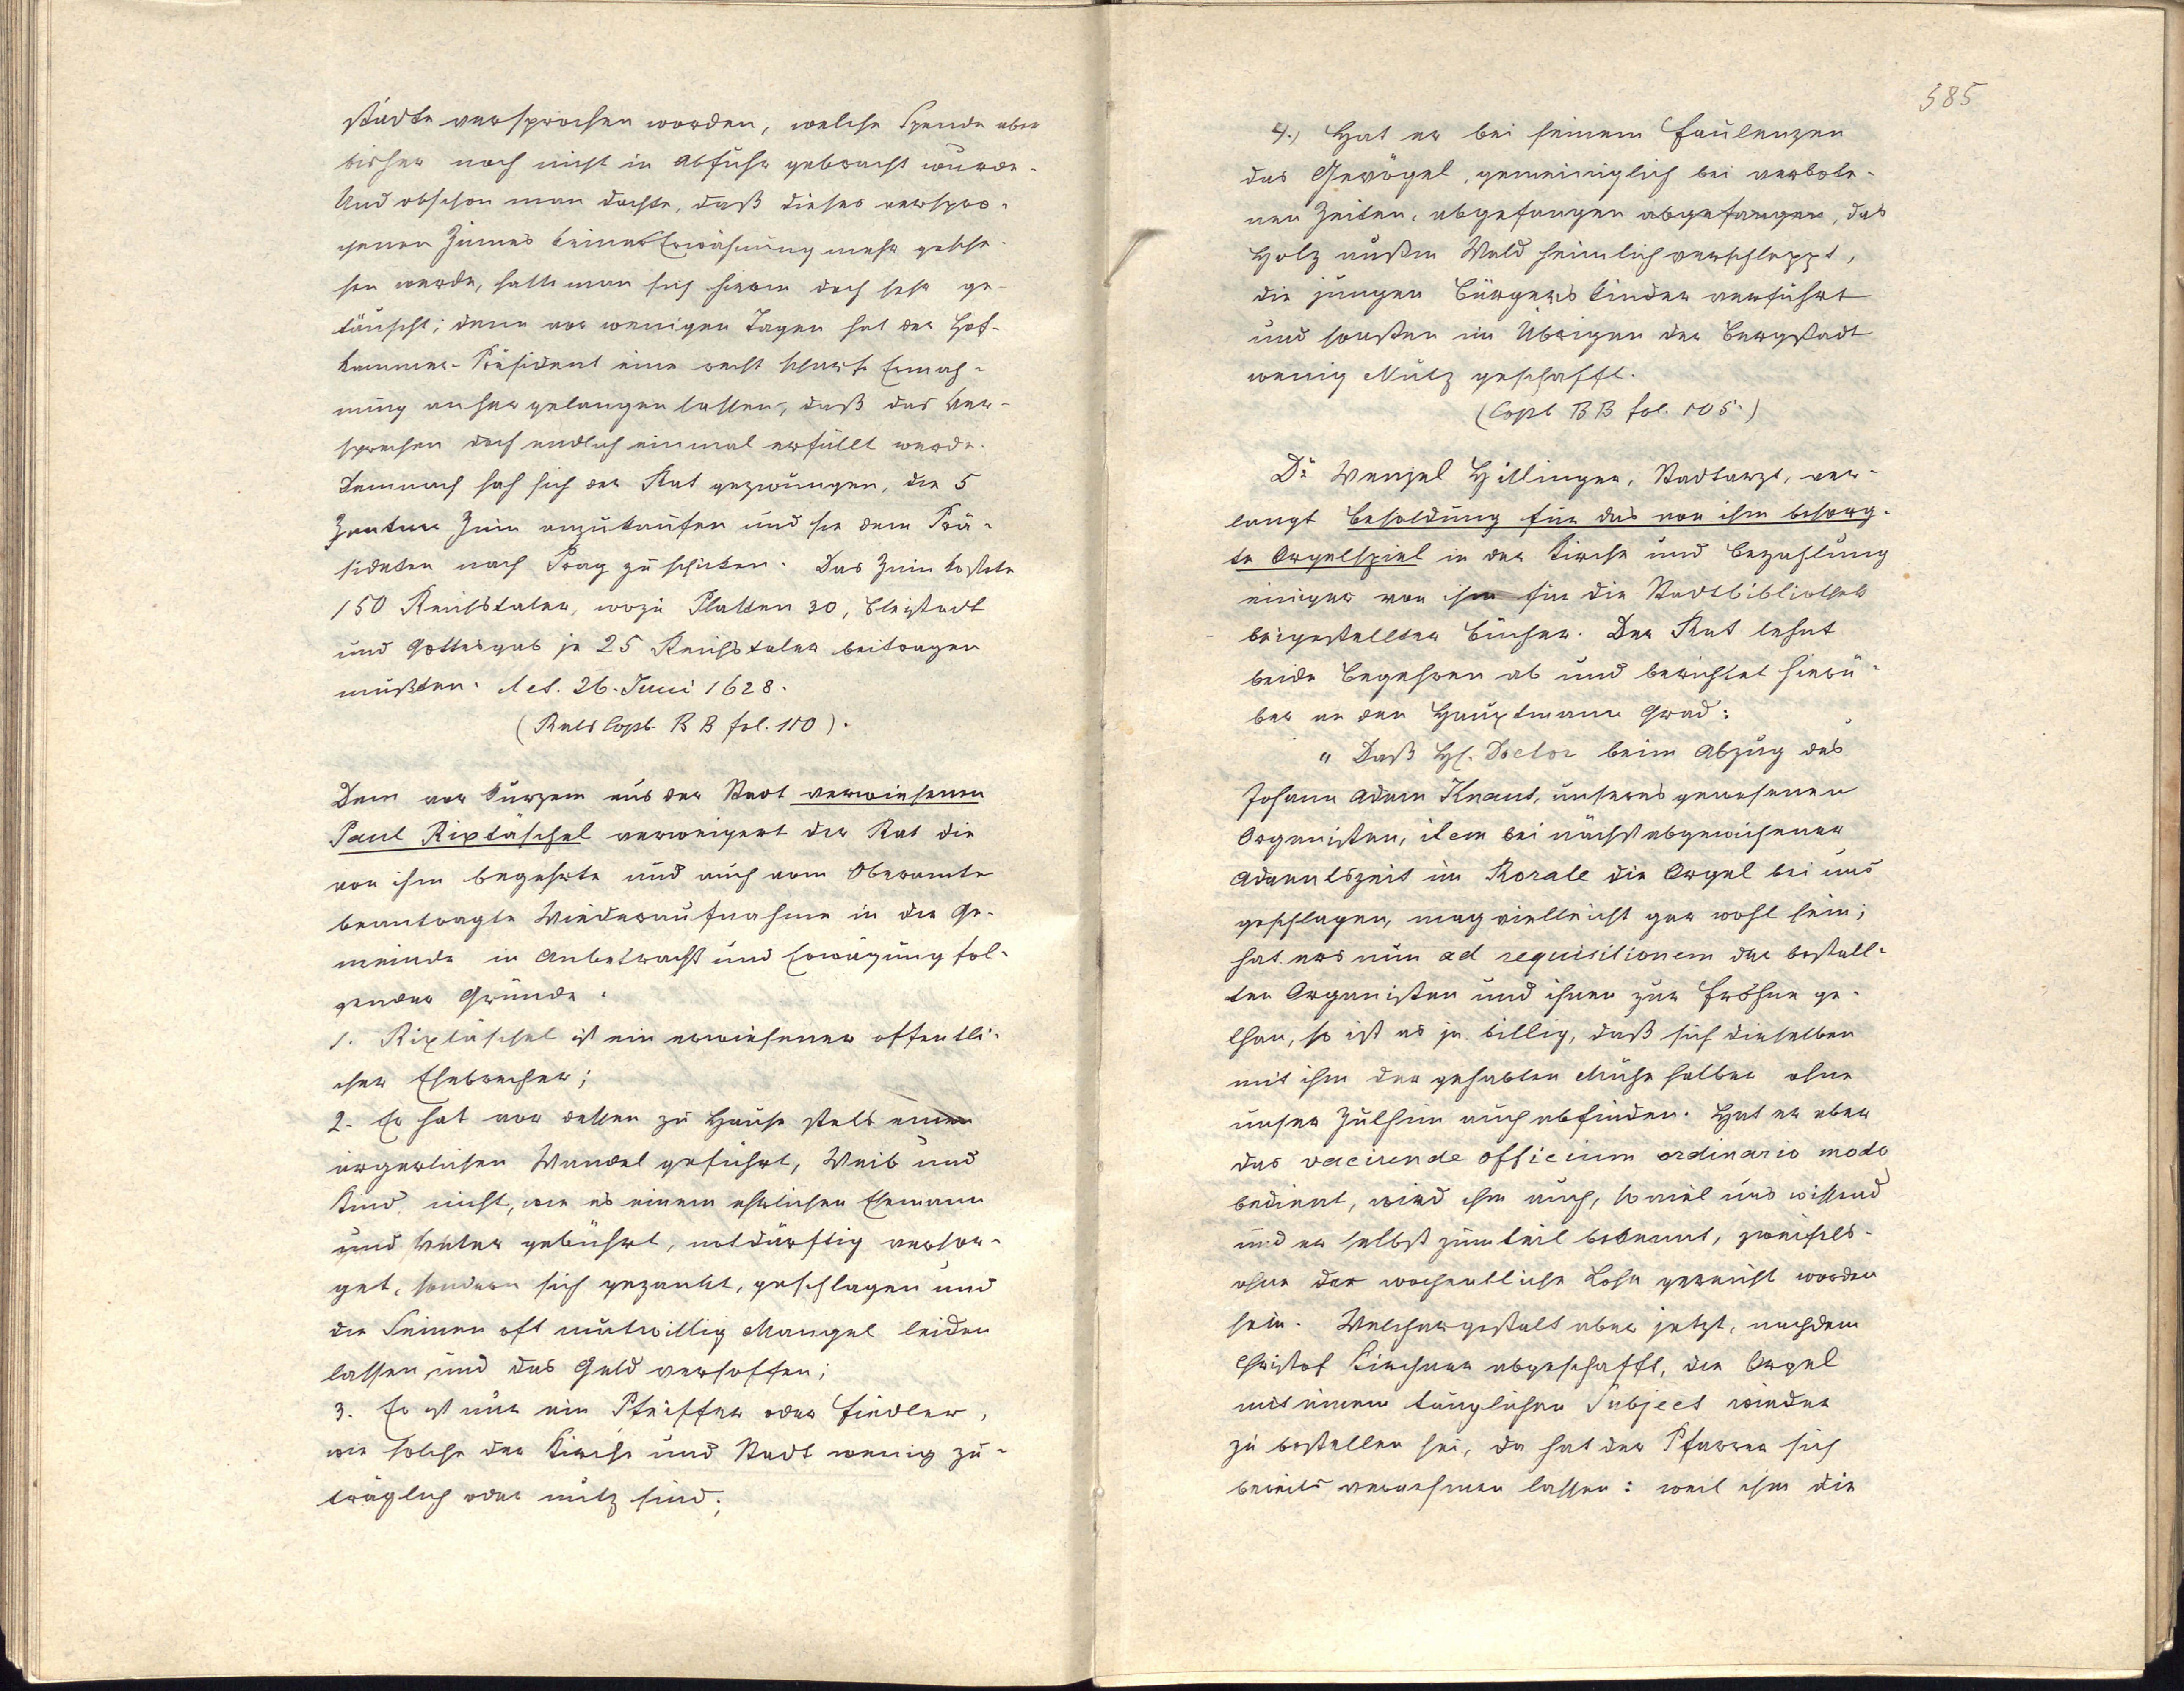 städte versprochen worden, welche Spende aber
bisher noch nicht in Abfuhr gebracht wurde.
Und obschon man dachte, daß dieses verspro-
chenen Zinnes keiner Erwähnung mehr gesche-
hen werde, hatte man sich hierin doch sehr ge-
täuscht; denn vor wenigen Tagen hat der Hof-
kammer-Präsident eine recht scharfe Ermah-
nung anher gelangen lassen, daß das Ver-
sprechen doch endlich einmal erfüllt werde.
Demnach sah sich der Rat gezwungen, die 5
Zentner Zinn anzukaufen und sie dem Prä-
sidenten nach Prag zu schicken. Das Zinn kostete
150 Reichstaler, wozu Platten 30, Bleistadt
und Gottesgab je 25 Reichstaler beitragen
mußten. Act. 26. Juni 1628.
(Rats Copb. BB fol. 110).
Dem vor kurzem aus der Stadt verwiesenen
Paul Rixtäschel verweigert der Rat die
von ihm begehrte und auch vom Oberamte
beantragte Wiederaufnahme in die Ge-
meinde in Anbetracht und Erwägung fol-
gender Gründe:
1. Rixtäschel ist ein erwiesener offentli-
cher Ehebrecher;
2. Er hat vor dessen zu Hause stets einen
ärgerlichen Wandel geführt, Weib und
Kind nicht, wie es einem ehrlichen Ehemann
und Vater gebührt, notdürftig versor-
get, sondern sich gezankt, geschlagen und
die Seinen oft mutwillig Mangel leiden
lassen und das Geld versoffen;
3. Er ist nur ein Pfeiffer oder Fiedler,
wie solche der Kirche und Stadt wenig zu-
träglich oder nutz sind;
585
4.) Hat er bei seinem Faulenzen
das Gevögel, gemeiniglich bei verbote-
nen Zeiten, abgefangen abgefangen, das
Holz außm Wald heimlich verschleppt,
die jungen Bürgerskinder verführt
und sonsten im Übrigen der Bergstadt
wenig Nutz geschafft.
(Copb BB fol. 105.)
Dr Wenzel Hillinger, Stadtarzt, ver-
langt Besoldung für das von ihm besorg-
te Orgelspiel in der Kirche und Bezahlung
einiger von ihm für die Stadtbibliothek
beigestellter Bücher. Der Rat lehnt
beide Begehren ab und berichtet hierü-
ber an den Hauptmann Grad:
"Daß H. Doctor beim Abzug des
Johann Adam Knaut, unseres gewesenen
Organisten, item bei nächst abgewichener
Adventszeit im Rorate die Orgel bei uns
geschlagen, mag vielleicht gar wohl sein;
hat ers nun ad requisitionem der bestall-
ten Organisten und ihnen zur Fröhne ge-
than, so ist es ja billig, daß sich dieselben
mit ihm der gehabten Mühe halber ohne
unser Zuthun auch abfinden. Hat er aber
das vacirende officium ordinario modo
bedient, wird ihm auch, soviel uns wissend
und er selbst zumteil bekennt, zweifels-
ohne der wochentliche Lohn gereicht worden
sein. Welchergestalt aber jetzt, nachdem
Christof Kirchner abgeschafft, die Orgel
mit einem tauglichen Subject wieder
zu bestellen sei, da hat der Pfarrer sich
bereits vernehmen lassen: weil ihm die